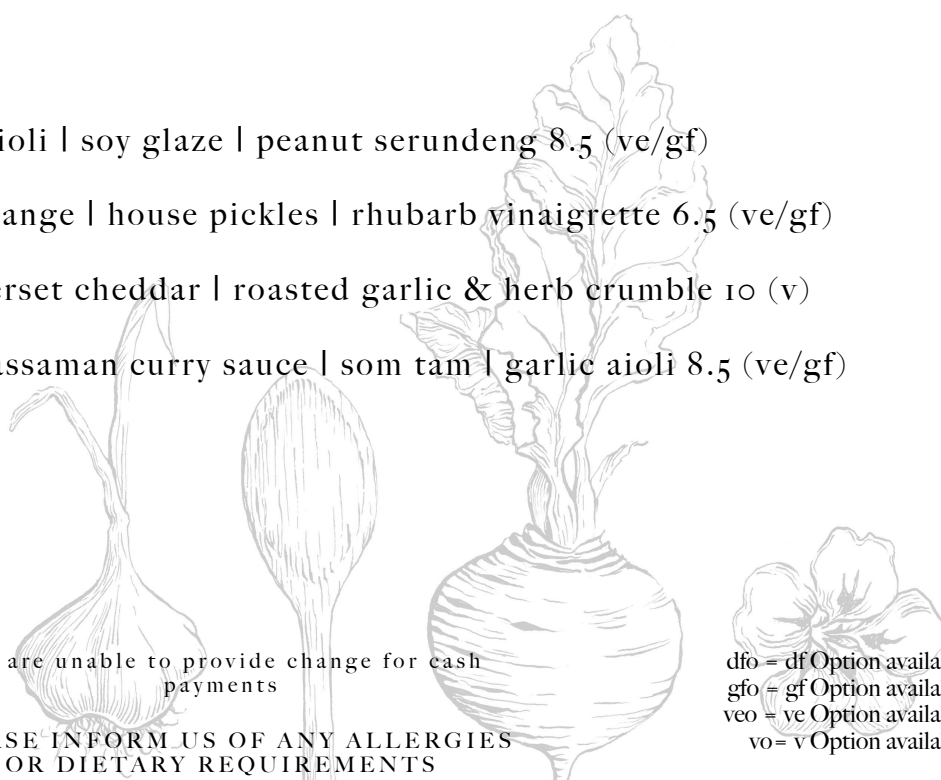 ioli | soy glaze | peanut serundeng 8.5 (ve/gf)
ange | house pickles | rhubarb vinaigrette 6.5 (ve/gf)
erset cheddar | roasted garlic & herb crumble 10 (v)
assaman curry sauce | som tam | garlic aioli 8.5 (ve/gf)
are unable to provide change for cash
payments
ASE INFORM US OF ANY ALLERGIES
OR DIETARY REQUIREMENTS
dfo = df Option availa
gfo = gf Option availa
veo = ve Option availa
vo= v Option availa